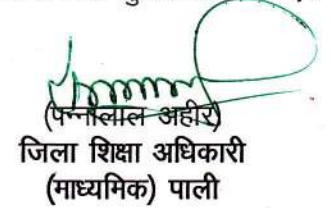 (पन्नालाल अहीर)
जिला शिक्षा अधिकारी
(माध्यमिक) पाली